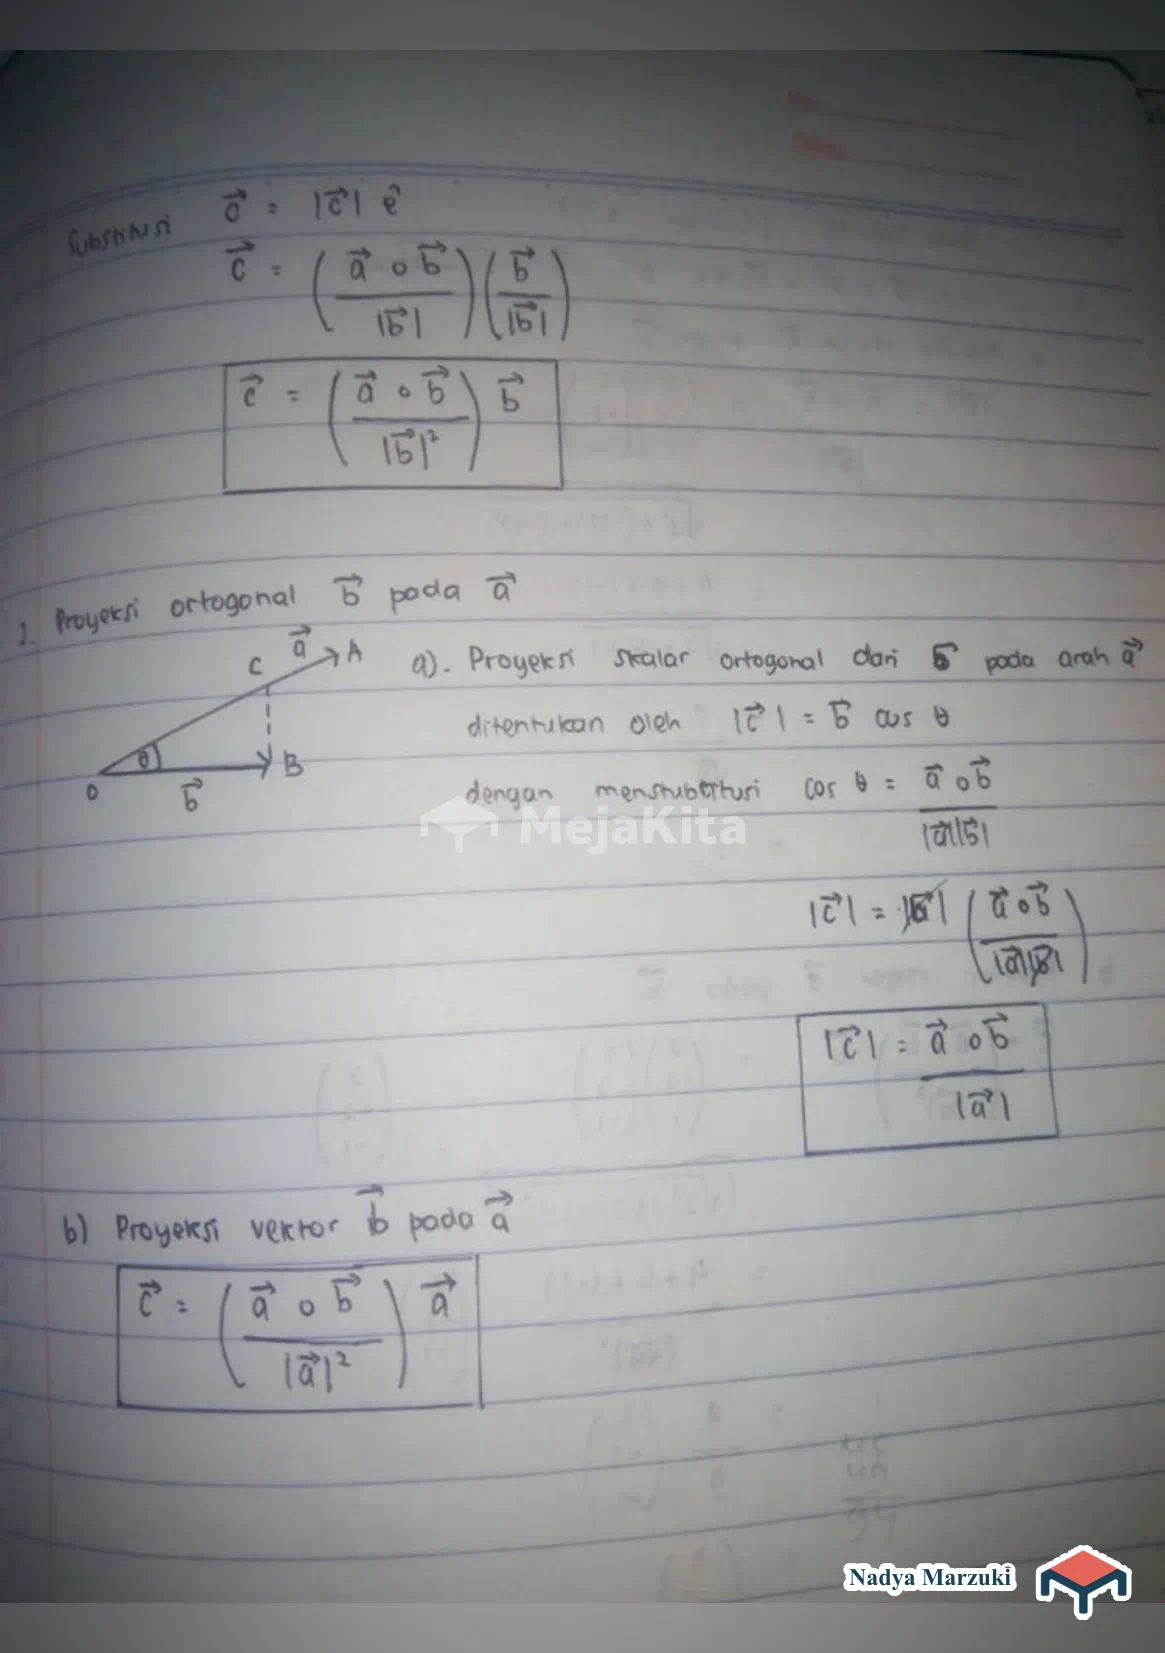 Substitusi c⃗ = |c⃗| ê
c⃗ = (a⃗ ∘ b⃗ / |b⃗|) (b⃗ / |b⃗|)
c⃗ = (a⃗ ∘ b⃗ / |b⃗|²) b⃗
2. Proyeksi ortogonal b⃗ pada a⃗
C a⃗ A
θ
O b⃗ B
a). Proyeksi skalar ortogonal dari b⃗ pada arah a⃗
ditentukan oleh |c⃗| = b⃗ cos θ
dengan menstubtitusi cos θ = a⃗ ∘ b⃗ / |a⃗||b⃗|
MejaKita
|c⃗| = |b⃗| (a⃗ ∘ b⃗ / |a⃗||b⃗|)
|c⃗| = a⃗ ∘ b⃗ / |a⃗|
b) Proyeksi vektor b⃗ pada a⃗
c⃗ = (a⃗ ∘ b⃗ / |a⃗|²) a⃗
Nadya Marzuki